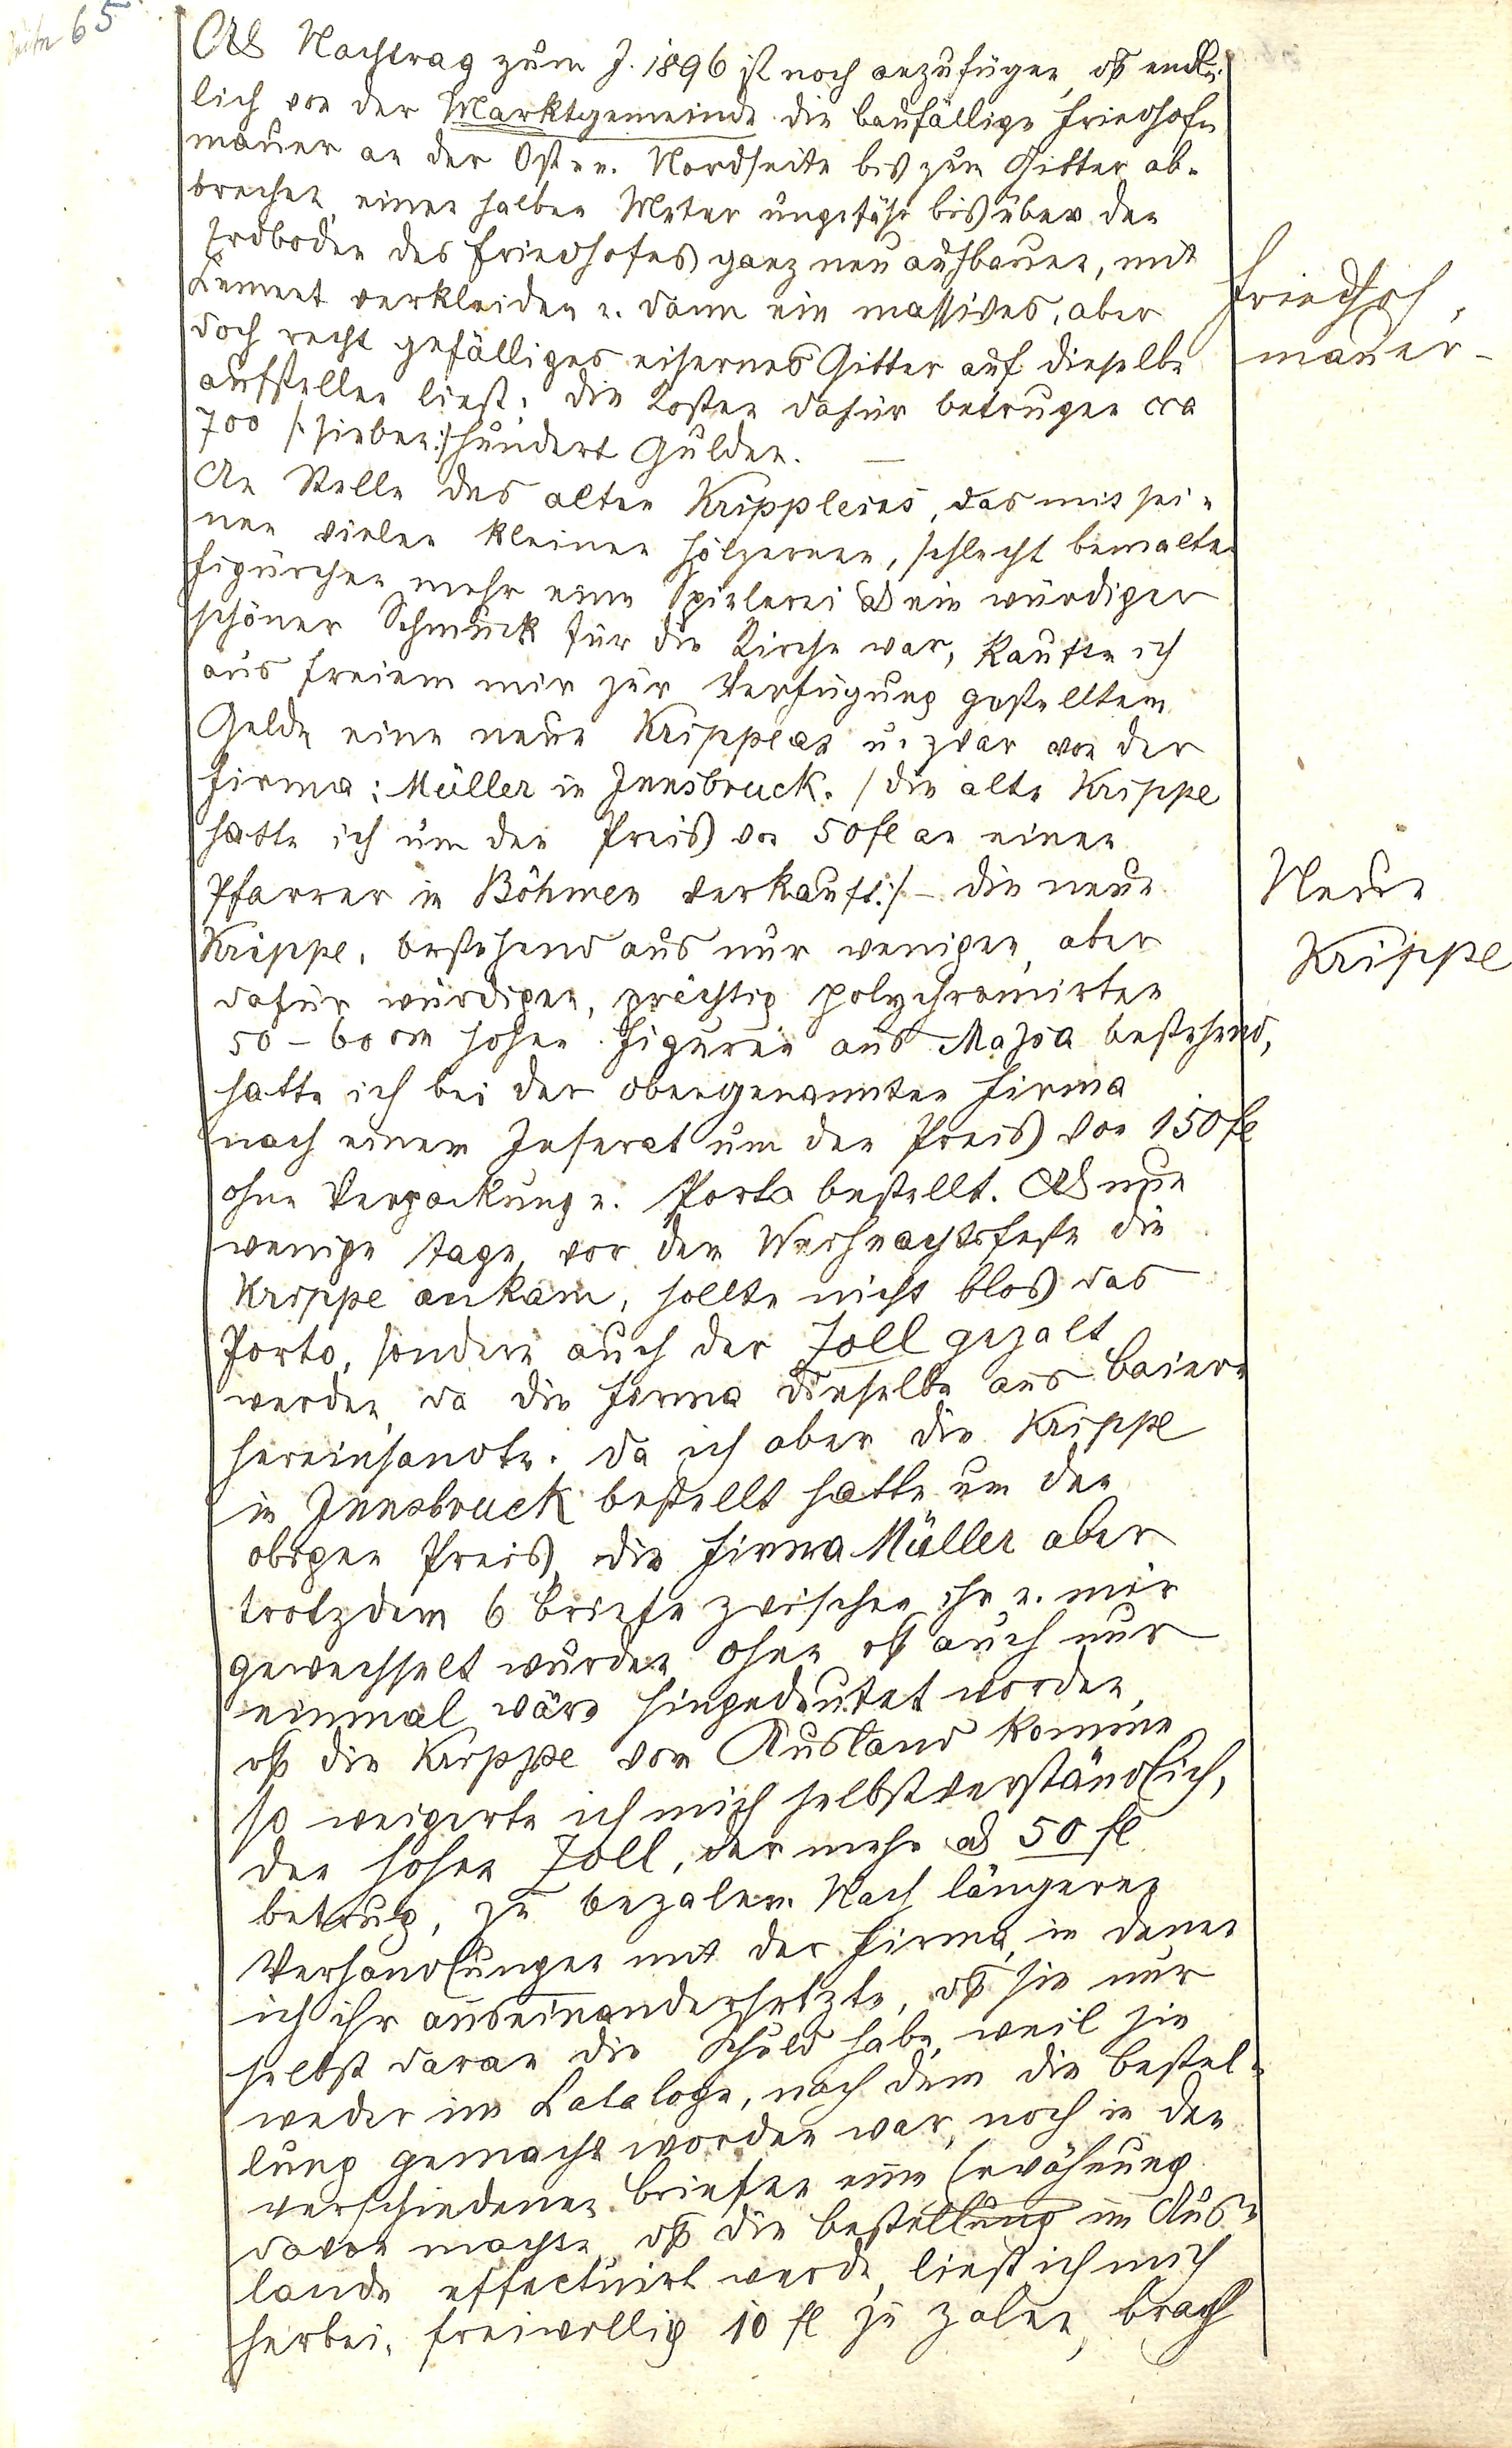 Seite 65
Als Nachtrag zum J. 1896 ist noch anzufügen, daß end-
lich von der Marktgemeinde die baufällige Friedhof-
mauer an der Ost u. Nordseite bis zum Gitter ab-
brechen, einen halben Meter ungefähr bis über den
Erdboden des Friedhofes ganz neu aufbauen, mit
Cement verkleiden u. dann ein massives, aber
doch recht gefälliges eisernes Gitter auf dieselbe
aufstellen ließ. Die Kosten dafür betrugen cca
700 /: sieben :/ hundert Gulden. —
Friedhof-
mauer -
An Stelle des alten Krippleins, das mit sei-
nen vielen kleinen hölzernen, schlecht bemalten
Figürchen mehr eine Spielerei als ein würdiger
schöner Schmuck für die Kirche war, kaufte ich
aus freiem mir zur Verfügung gestelltem
Gelde eine neue Krippe an u. zwar von der
Firma: Müller in Innsbruck. / Die alte Krippe
hatte ich um den Preis von 50 fl an einen
Pfarrer in Böhmen verkauft :/ - Die neue
Krippe, bestehend aus nur wenigen, aber
Neue
Krippe
dafür würdigen, prächtig polychromirten
50 - 60 cm hohen Figuren aus bestehend,
hatte ich bei der obengenannten Firma
nach einem Inserat um den Preis von 150 fl
ohne Verpackung u. Porto bestellt. Als nun
wenige Tage vor dem Weihnachtsfeste die
Krippe ankam, sollte nicht blos das
Porto, sondern auch der Zoll gezalt
werden, da die Firma dieselbe aus Baiern
hereinsandte. Da ich aber die Krippe
in Innsbruck bestellt hatte um den
obigen Preis, die Firma Müller aber
trotzdem 6 Briefe zwischen ihr u. mir
gewechselt wurden ohne daß auch nur
einmal wäre hingedeutet worden,
daß die Krippe vom Ausland komme,
so weigerte ich mich selbstverständlich,
den hohen Zoll, der mehr als 50 fl
betrug, zu bezalen. Nach längeren
Verhandlungen mit der Firma, in denen
ich ihr auseinandersetzte, daß sie nur
selbst daran die Schuld habe, weil sie
weder im Cataloge, nach dem die Bestel-
lung gemacht worden war, noch in den
verschiedenen Briefen eine Erwähnung
davon machte, daß die Bestellung im Aus-
lande effectuirt werde, ließ ich mich
herbei, freiwillig 10 fl zu zalen, brach